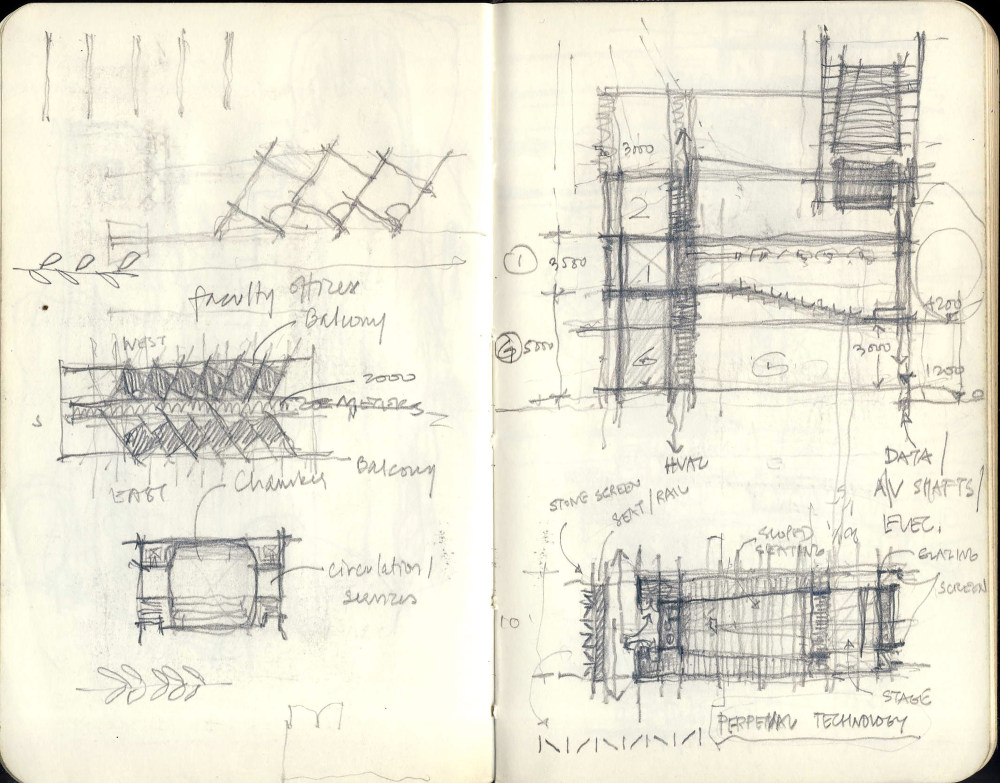 faculty offices
Balcony
WEST
2000
S
Balcony
EAST
Chamber
circulation/
services
3000
2
1
3500
1
G
5000
G
4200
3000
1200
HVAC
DATA/
A/V SHAFTS/
LEVEL.
STONE SCREEN
SEAT/RAIL
SLOPED
SEATING
GLAZING
SCREEN
10
STAGE
TECHNOLOGY